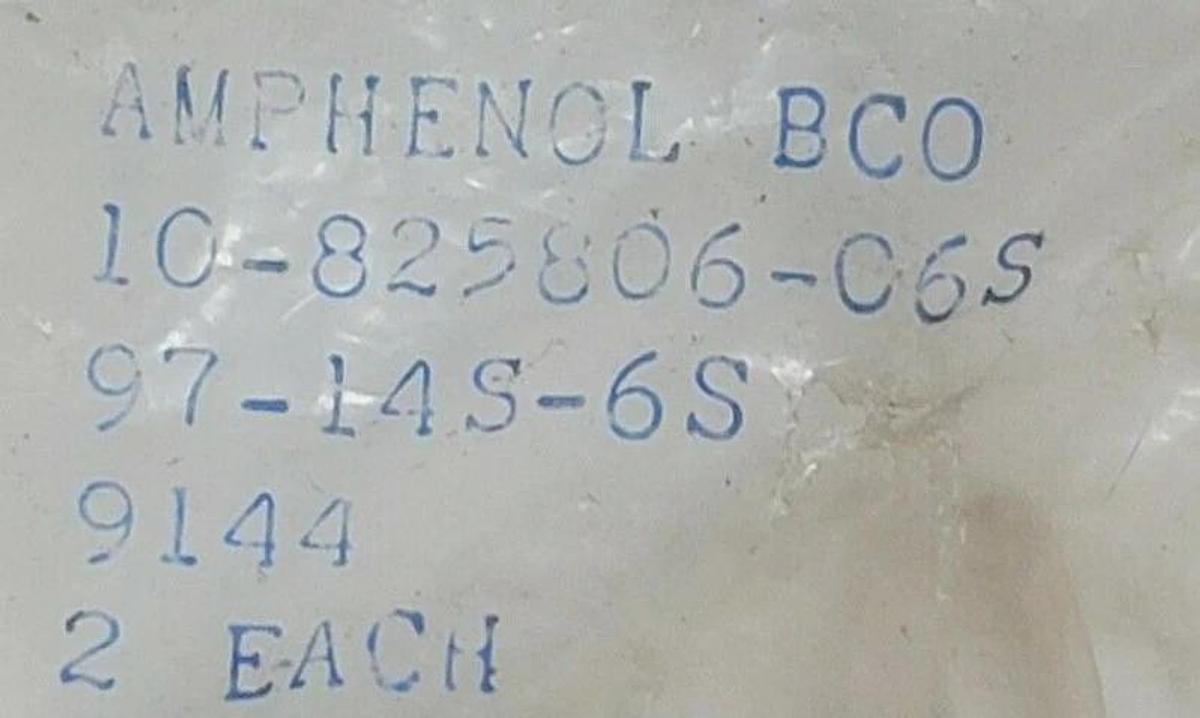 AMPHENOL BCO
10-825806-06S
97-14S-6S
9144
2 EACH